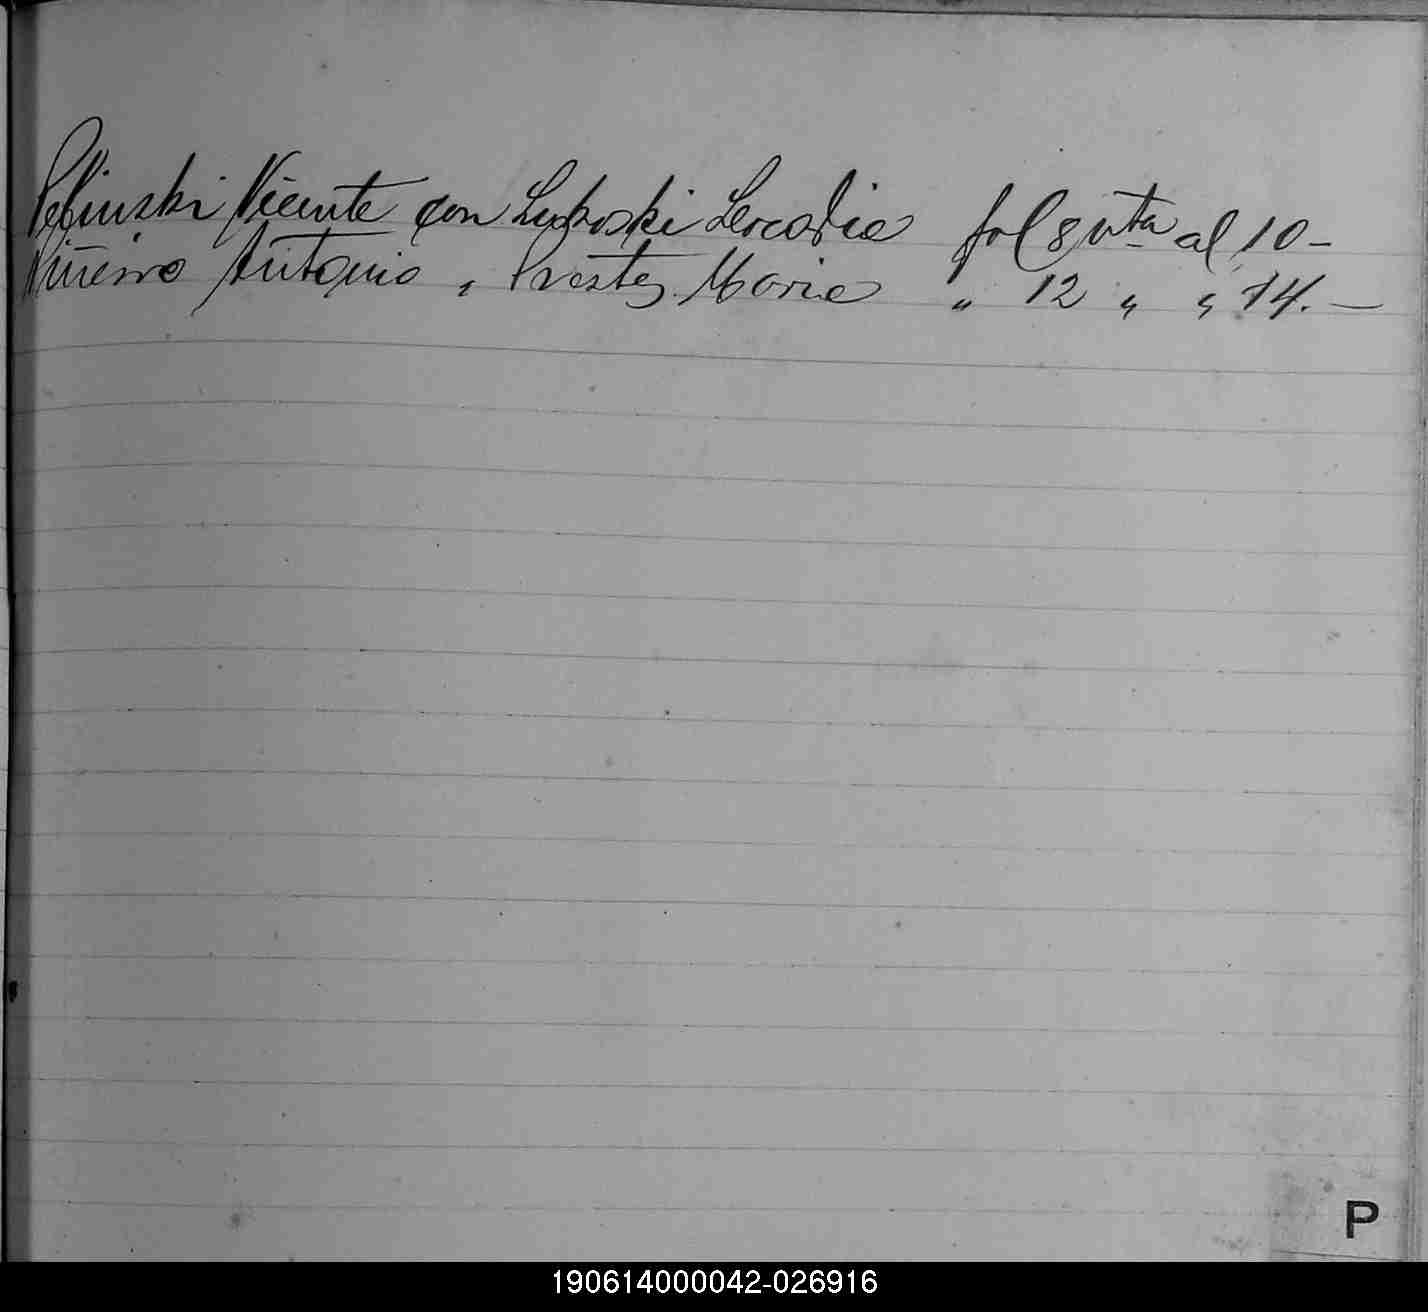 Vicente con Lukoski Leocadia fol 8 vta al 10-
Antonio " Prestes Maria " 12 " " 14.—
P
190614000042-026916